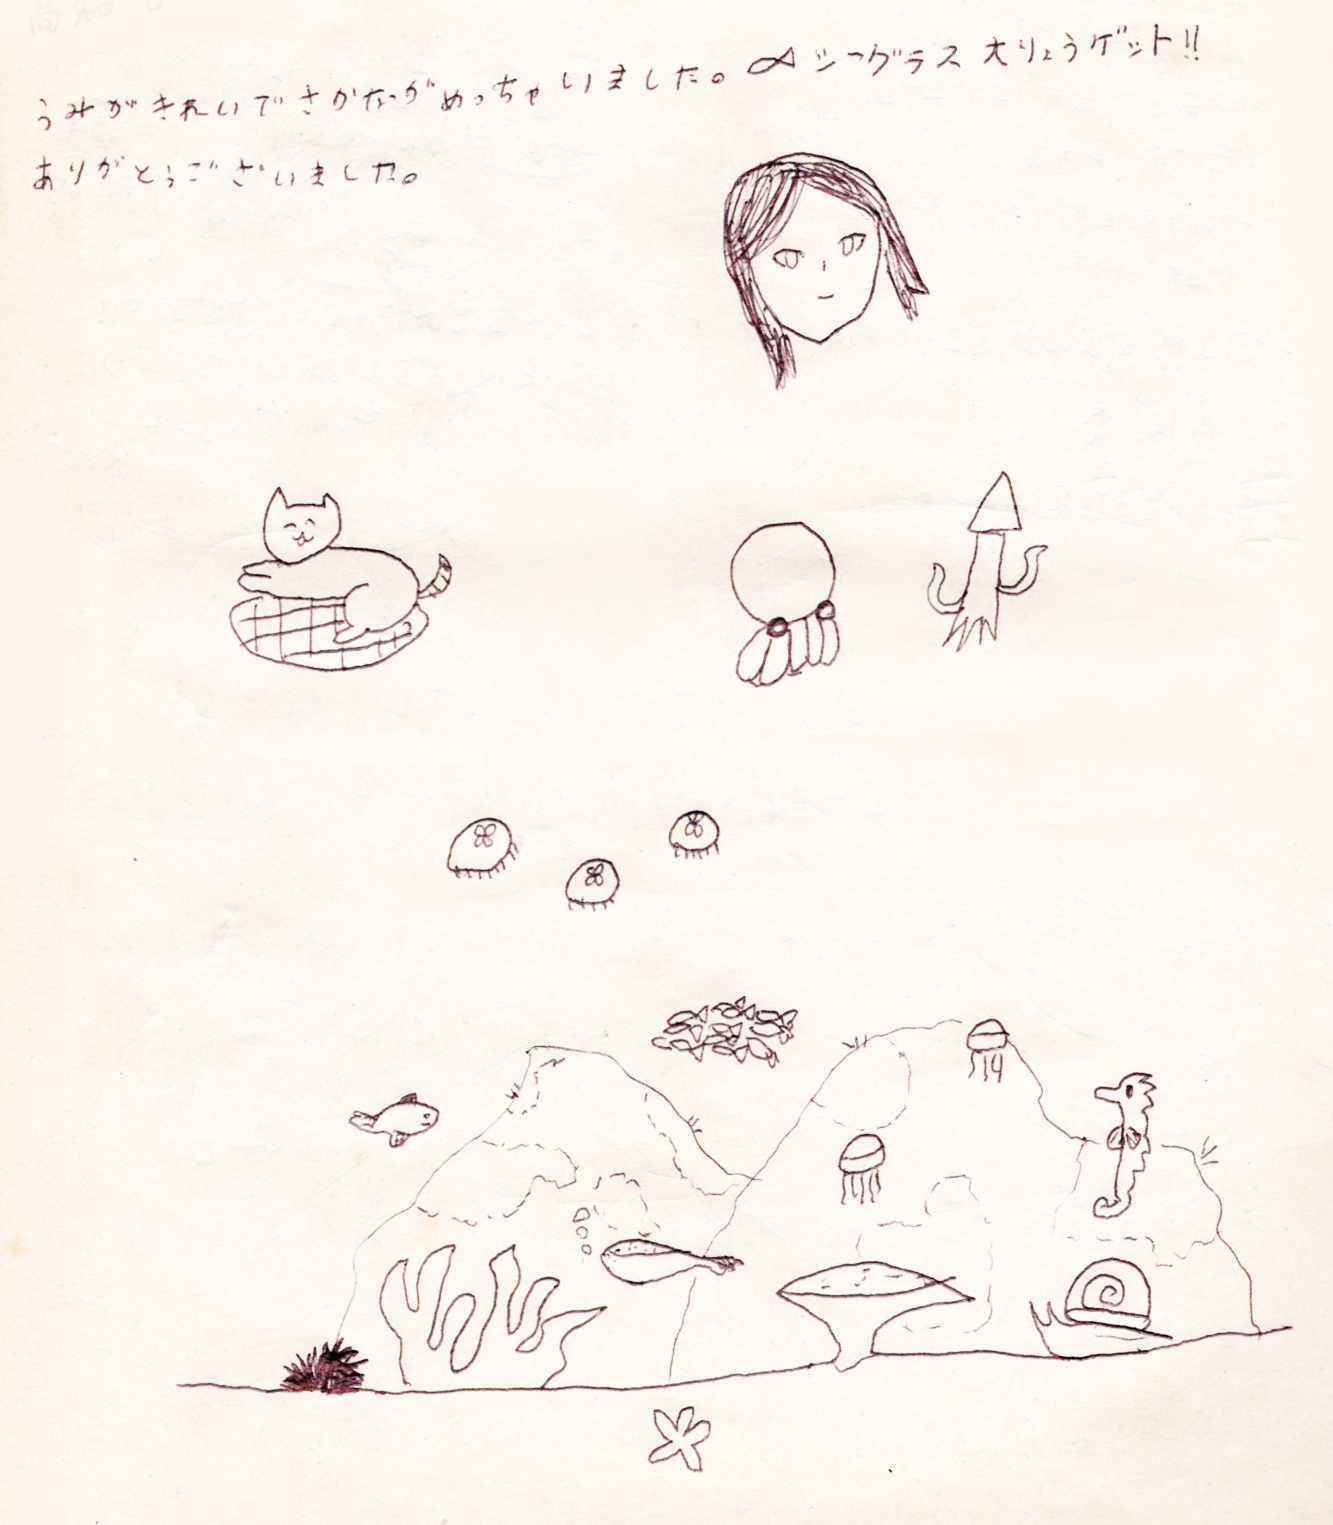 うみがきれいでさかながめっちゃいました。シーグラス大りょうゲット!!
ありがとうございました。